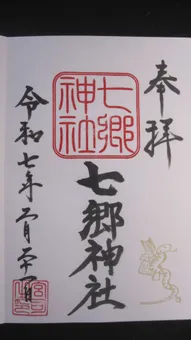 奉拝
七郷
神社
七郷神社
令和七年二月二十一日